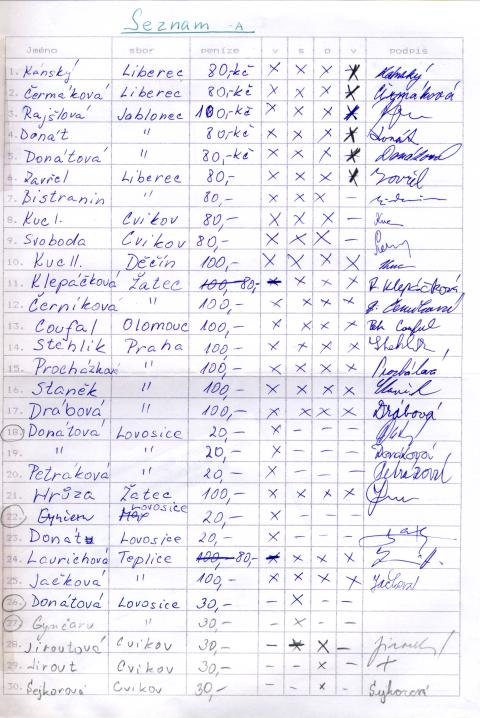 Seznam -A
Jméno sbor peníze v s o v podpis
1. Kánský Liberec 80,-kč × × × × Kánský
2. Čermáková Liberec 80,-kč × × × × Čermáková
3. Rajšlová Jablonec 100,-kč × × × ×
4. Donát " 80,-kč × × × × Donát
5. Donátová " 80,-kč × × × × Donátová
6. Zavřel Liberec 80,- × × × × Zavřel
7. Bistranin " 80,- × × × –
8. Kuc I. Cvikov 80,- × × × – Kuc
9. Svoboda Cvikov 80,- × × × –
10. Kuc II. Děčín 100,- × × × × Kuc
11. Klepáčková Žatec 100,- 80,- × × × × R. Klepáčková
12. Černíková " 100,- × × × ×
13. Coufal Olomouc 100,- × × × × Coufal
14. Stehlík Praha 100,- × × × × Stehlík
15. Procházková " 100,- × × × ×
16. Staněk " 100,- × × × × Staněk
17. Drábová " 100,- × × × × Drábová
18. Donátová Lovosice 20,- × – – –
19. " " 20,- × – – – Donátová
20. Petráková " 20,- × – – – Petráková
21. Hrůza Žatec 100,- × × × ×
22. Gynčera Lovosice 20,- × – – –
23. Donát Lovosice 20,- × – – –
24. Laurichová Teplice 100,- 80,- × × × –
25. Jačková " 100,- × × × × Jačková
26. Donátová Lovosice 30,- – × – –
27. Gynčaru " 30,- – × – –
28. Jiroutová Cvikov 30,- – × × –
29. Jirout Cvikov 30,- – – × – +
30. Sejkorová Cvikov 30,- – – × – Sejkorová